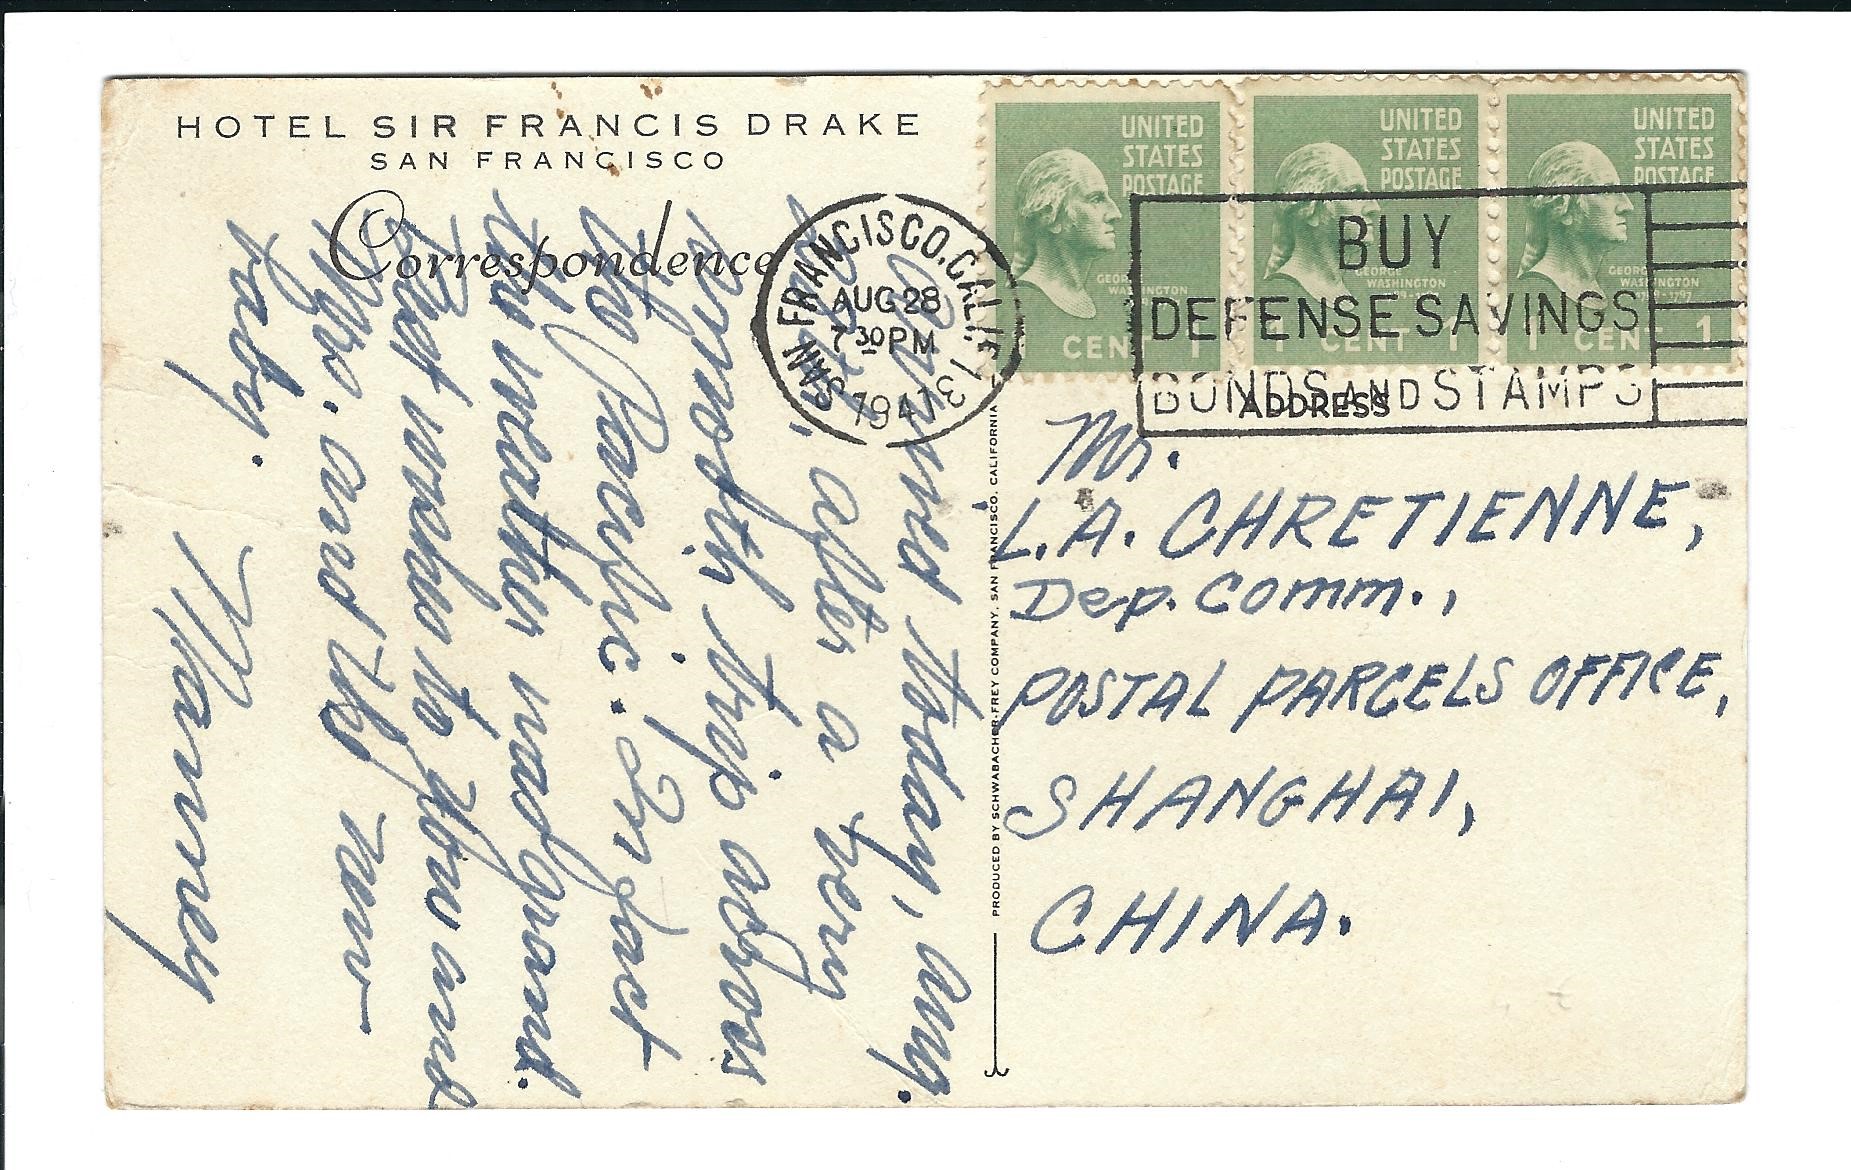 HOTEL SIR FRANCIS DRAKE
SAN FRANCISCO
Correspondence
Arrived today, Aug.
after a very
smooth trip across
the Pacific. In fact
the weather was grand.
Best wishes to you and
Mrs. and the new
baby.
Manney
PRODUCED BY SCHWABACHER-FREY COMPANY, SAN FRANCISCO, CALIFORNIA
SAN FRANCISCO, CALIF. 13
AUG 28
7 30 PM
1941
UNITED
STATES
POSTAGE
GEORGE
WASHINGTON
1 CENT 1
UNITED
STATES
POSTAGE
GEORGE
WASHINGTON
1 CENT 1
UNITED
STATES
POSTAGE
GEORGE
WASHINGTON
1 CENT 1
BUY
DEFENSE SAVINGS
BONDS AND STAMPS
ADDRESS
Mr.
L.A. CHRETIENNE,
Dep. Comm.,
POSTAL PARCELS OFFICE,
SHANGHAI,
CHINA.